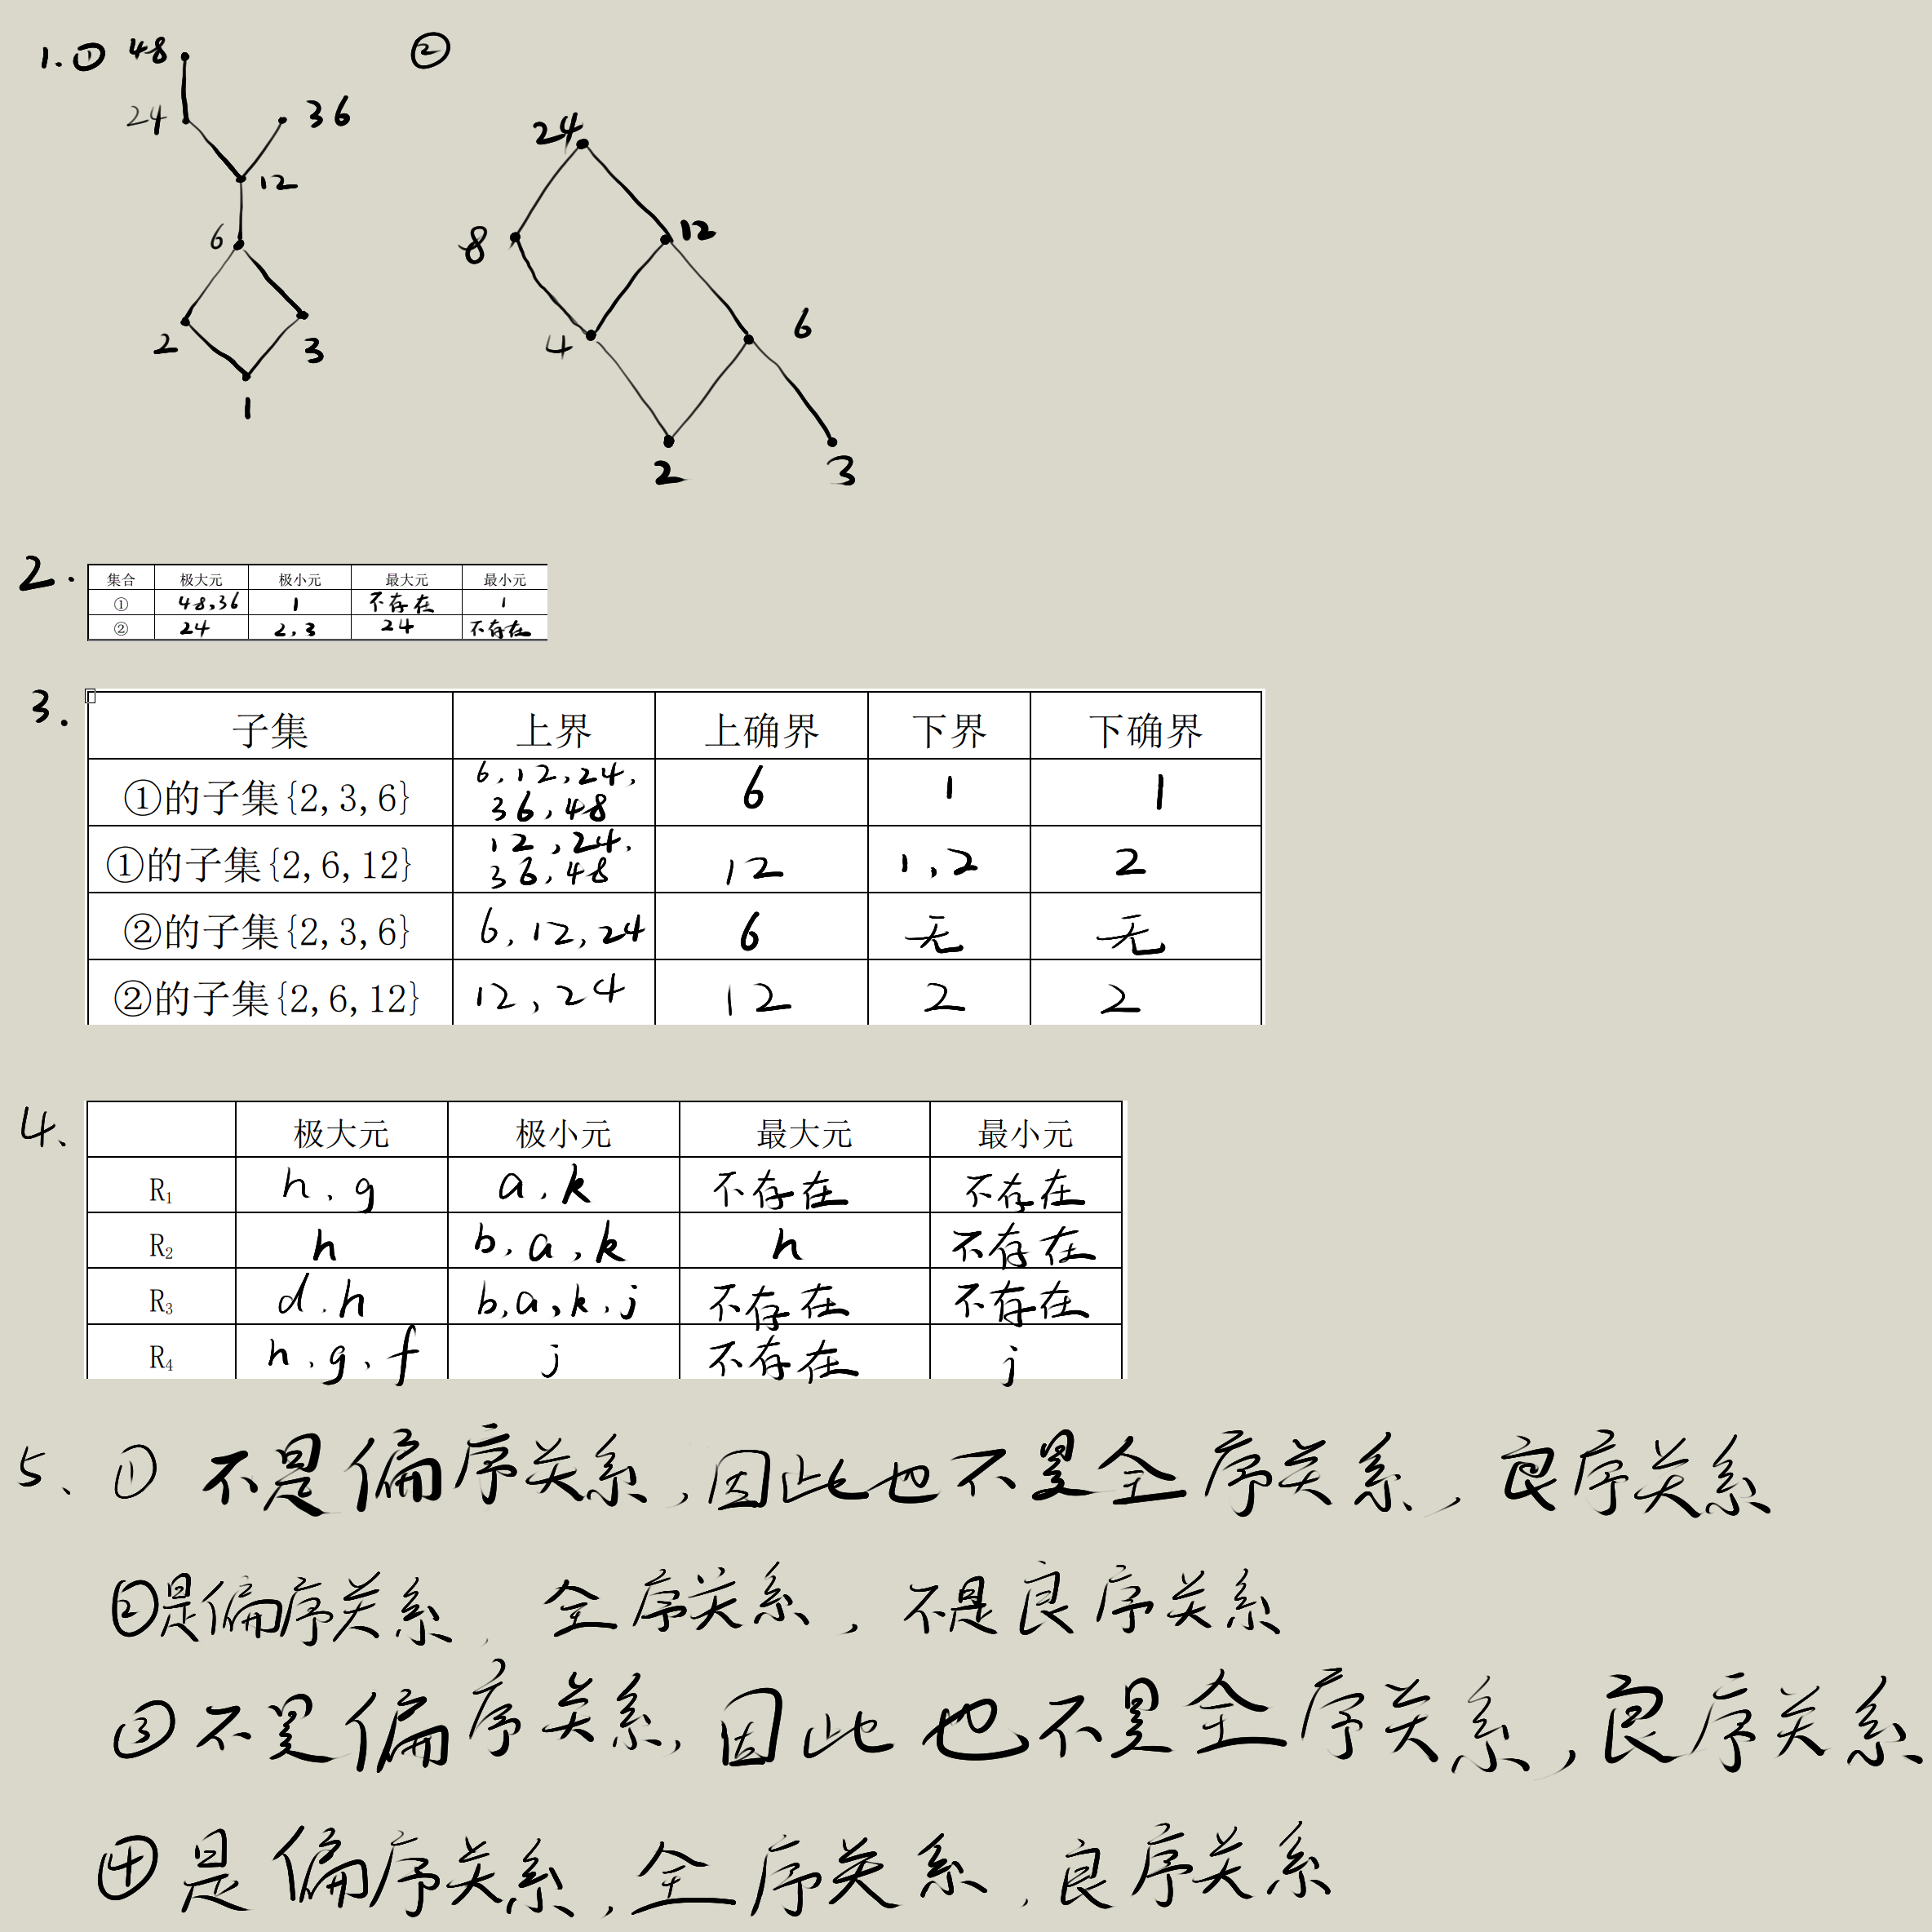 1. ① 48 ②
24 36
24
12
8 12
6
6
4
2 3
1
2 3
2. 集合 极大元 极小元 最大元 最小元
① 48,36 1 不存在 1
② 24 2,3 24 不存在
3. 子集 上界 上确界 下界 下确界
①的子集{2,3,6} 6,12,24, 6 1 1
36,48
①的子集{2,6,12} 12,24, 12 1,2 2
36,48
②的子集{2,3,6} 6,12,24 6 无 无
②的子集{2,6,12} 12,24 12 2 2
4、 极大元 极小元 最大元 最小元
R₁ h,g a,k 不存在 不存在
R₂ h b,a,k h 不存在
R₃ d,h b,a,k,j 不存在 不存在
R₄ h,g,f j 不存在 j
5、① 不是偏序关系,因此也不是全序关系,良序关系
②是偏序关系,全序关系,不是良序关系
③不是偏序关系,因此也不是全序关系,良序关系
④是偏序关系,全序关系,良序关系